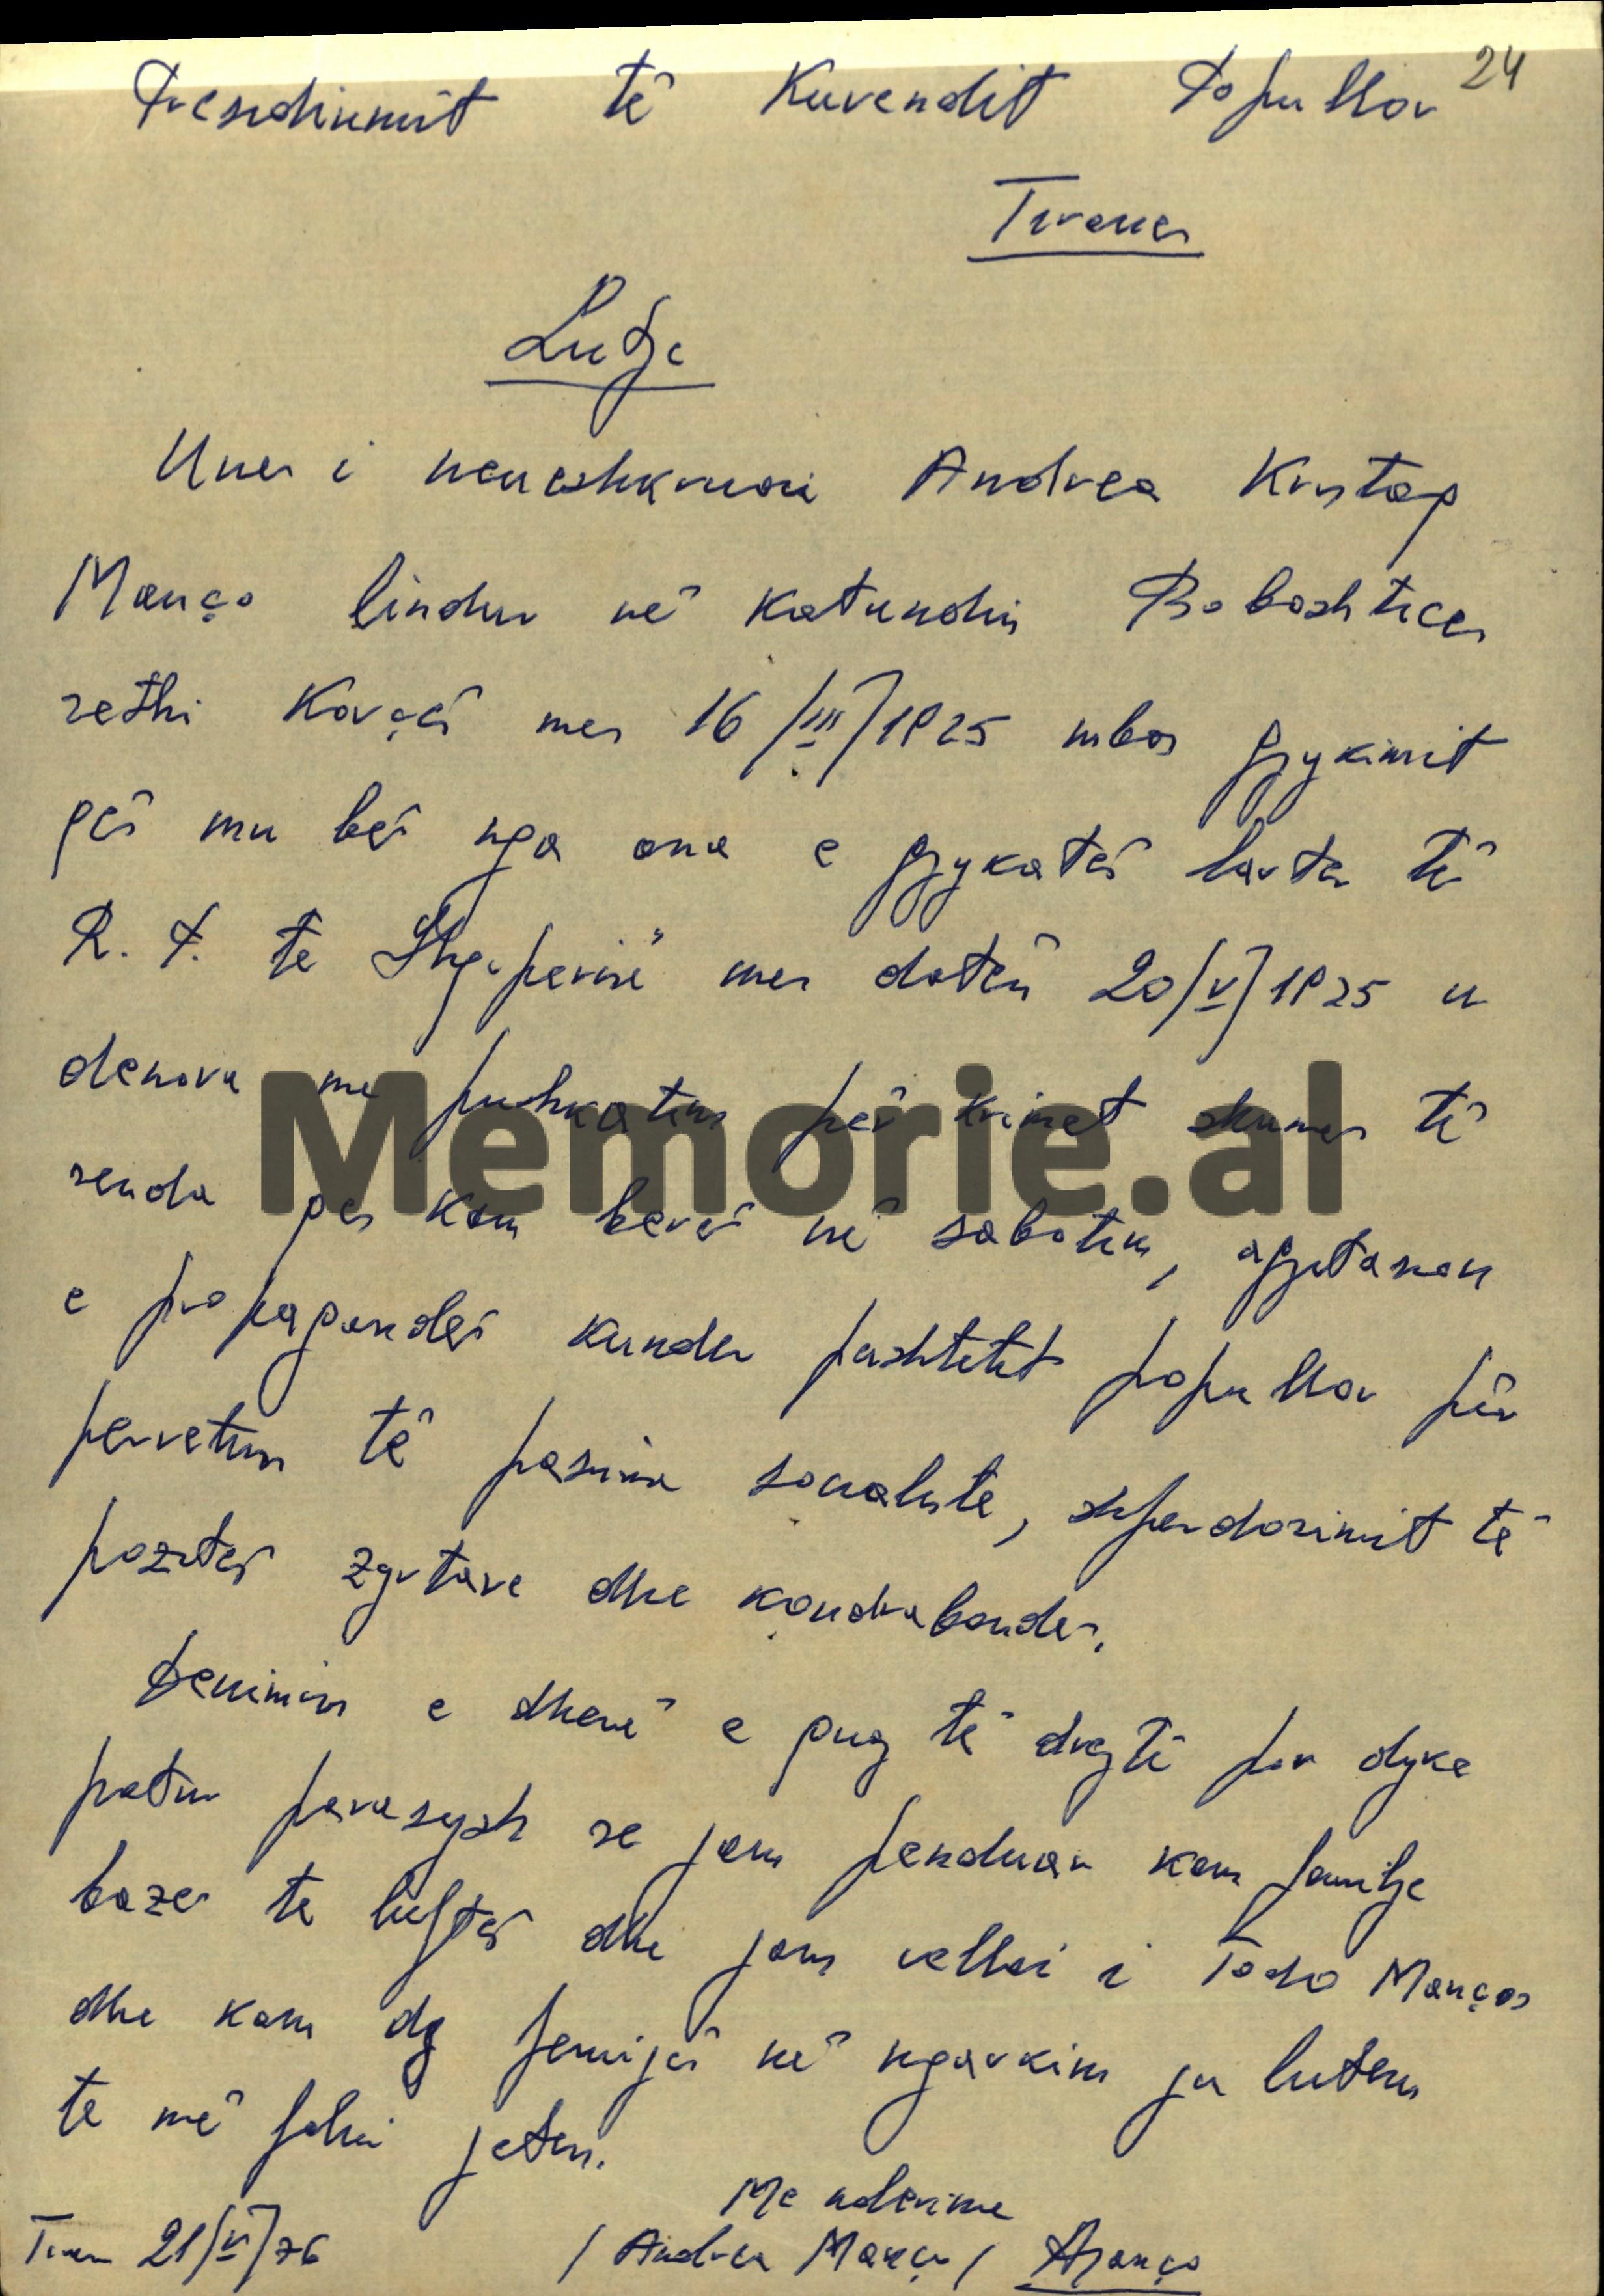 Presidiumit të Kuvendit Popullor 24
Tiranë
Lutje
Unë i nënëshkruari Andrea Kristaq
Manço lindur në katundin Boboshticë
rethi Korçës më 16/III/1925 mbas gjykimit
që mu bë nga ana e gjykatës lartë të
R. P. të Shqipërisë më datën 20/V/1925 u
denova me pushkatim për krimet shumë të
renda që kam bërë në sabotim, agjitasion
e propagandë kundër pushtetit popullor për
pervetim të pasurive socialiste, shpërdorimit të
pozitës zyrtare dhe kondrabandës.
Denimin e dhënë e quaj të drejtë por dyke
patur parasysh se jam penduar kam familje
bazë të luftës dhe jam vellai i Todo Manços
dhe kam dy femijë në ngarkim ju lutem
të më falni jetën.
Me nderime
Tiranë 21/V/76 /Andrea Manço/ AManço
Memorie.al